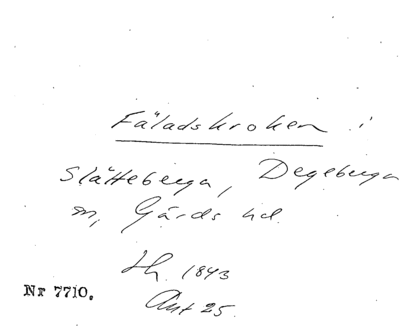 Fäladskroken i
Slätteberga, Degeberga
sn, Gärds hd
Lh. 1843
Ant 25.
Nr 7710.